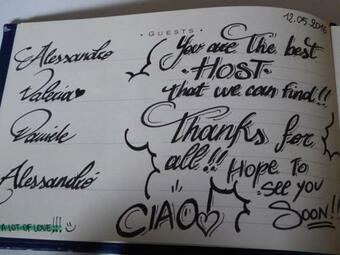 GUESTS
12.05.2016
Alessandro
Valeria
Daniele
Alessandro
A LOT OF LOVE!!!
You are The best
HOST
that we can find!!
Thanks for
all!!! Hope To
see you
Soon!!
CIAO!